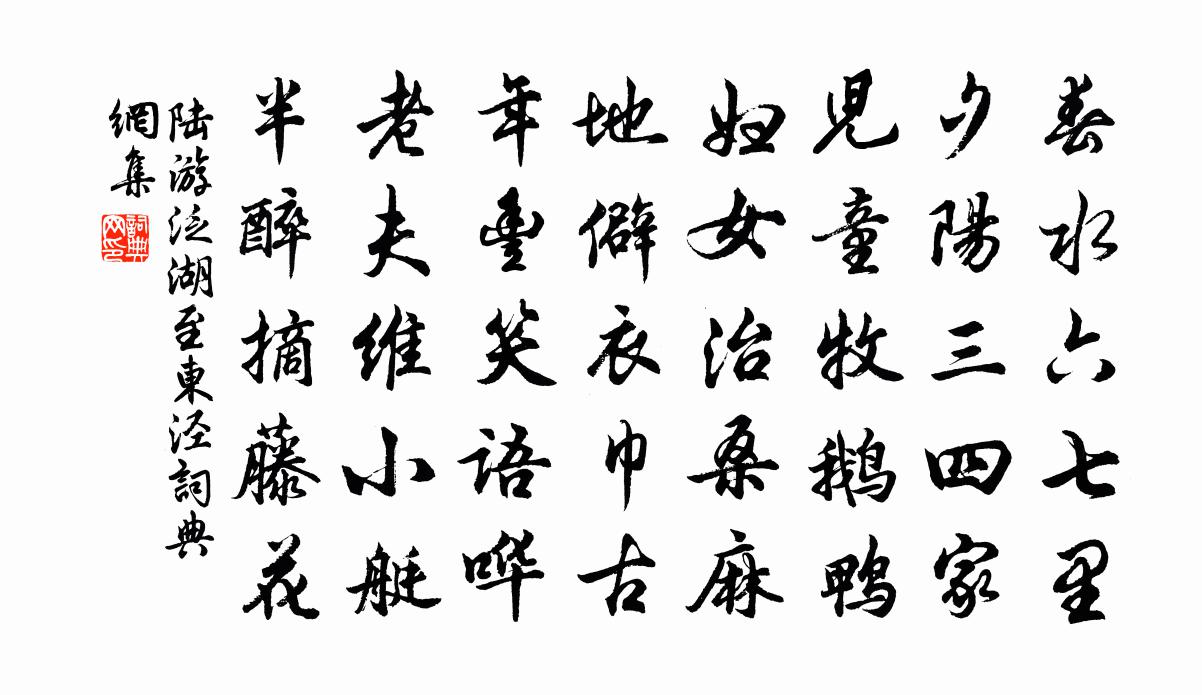 春水六七里
夕陽三四家
児童牧鹅鸭
妇女治桑麻
地僻衣巾古
年豊笑语哗
老夫维小艇
半醉摘藤花
陆游泛湖至東泾詞典
網集
詞典
网印